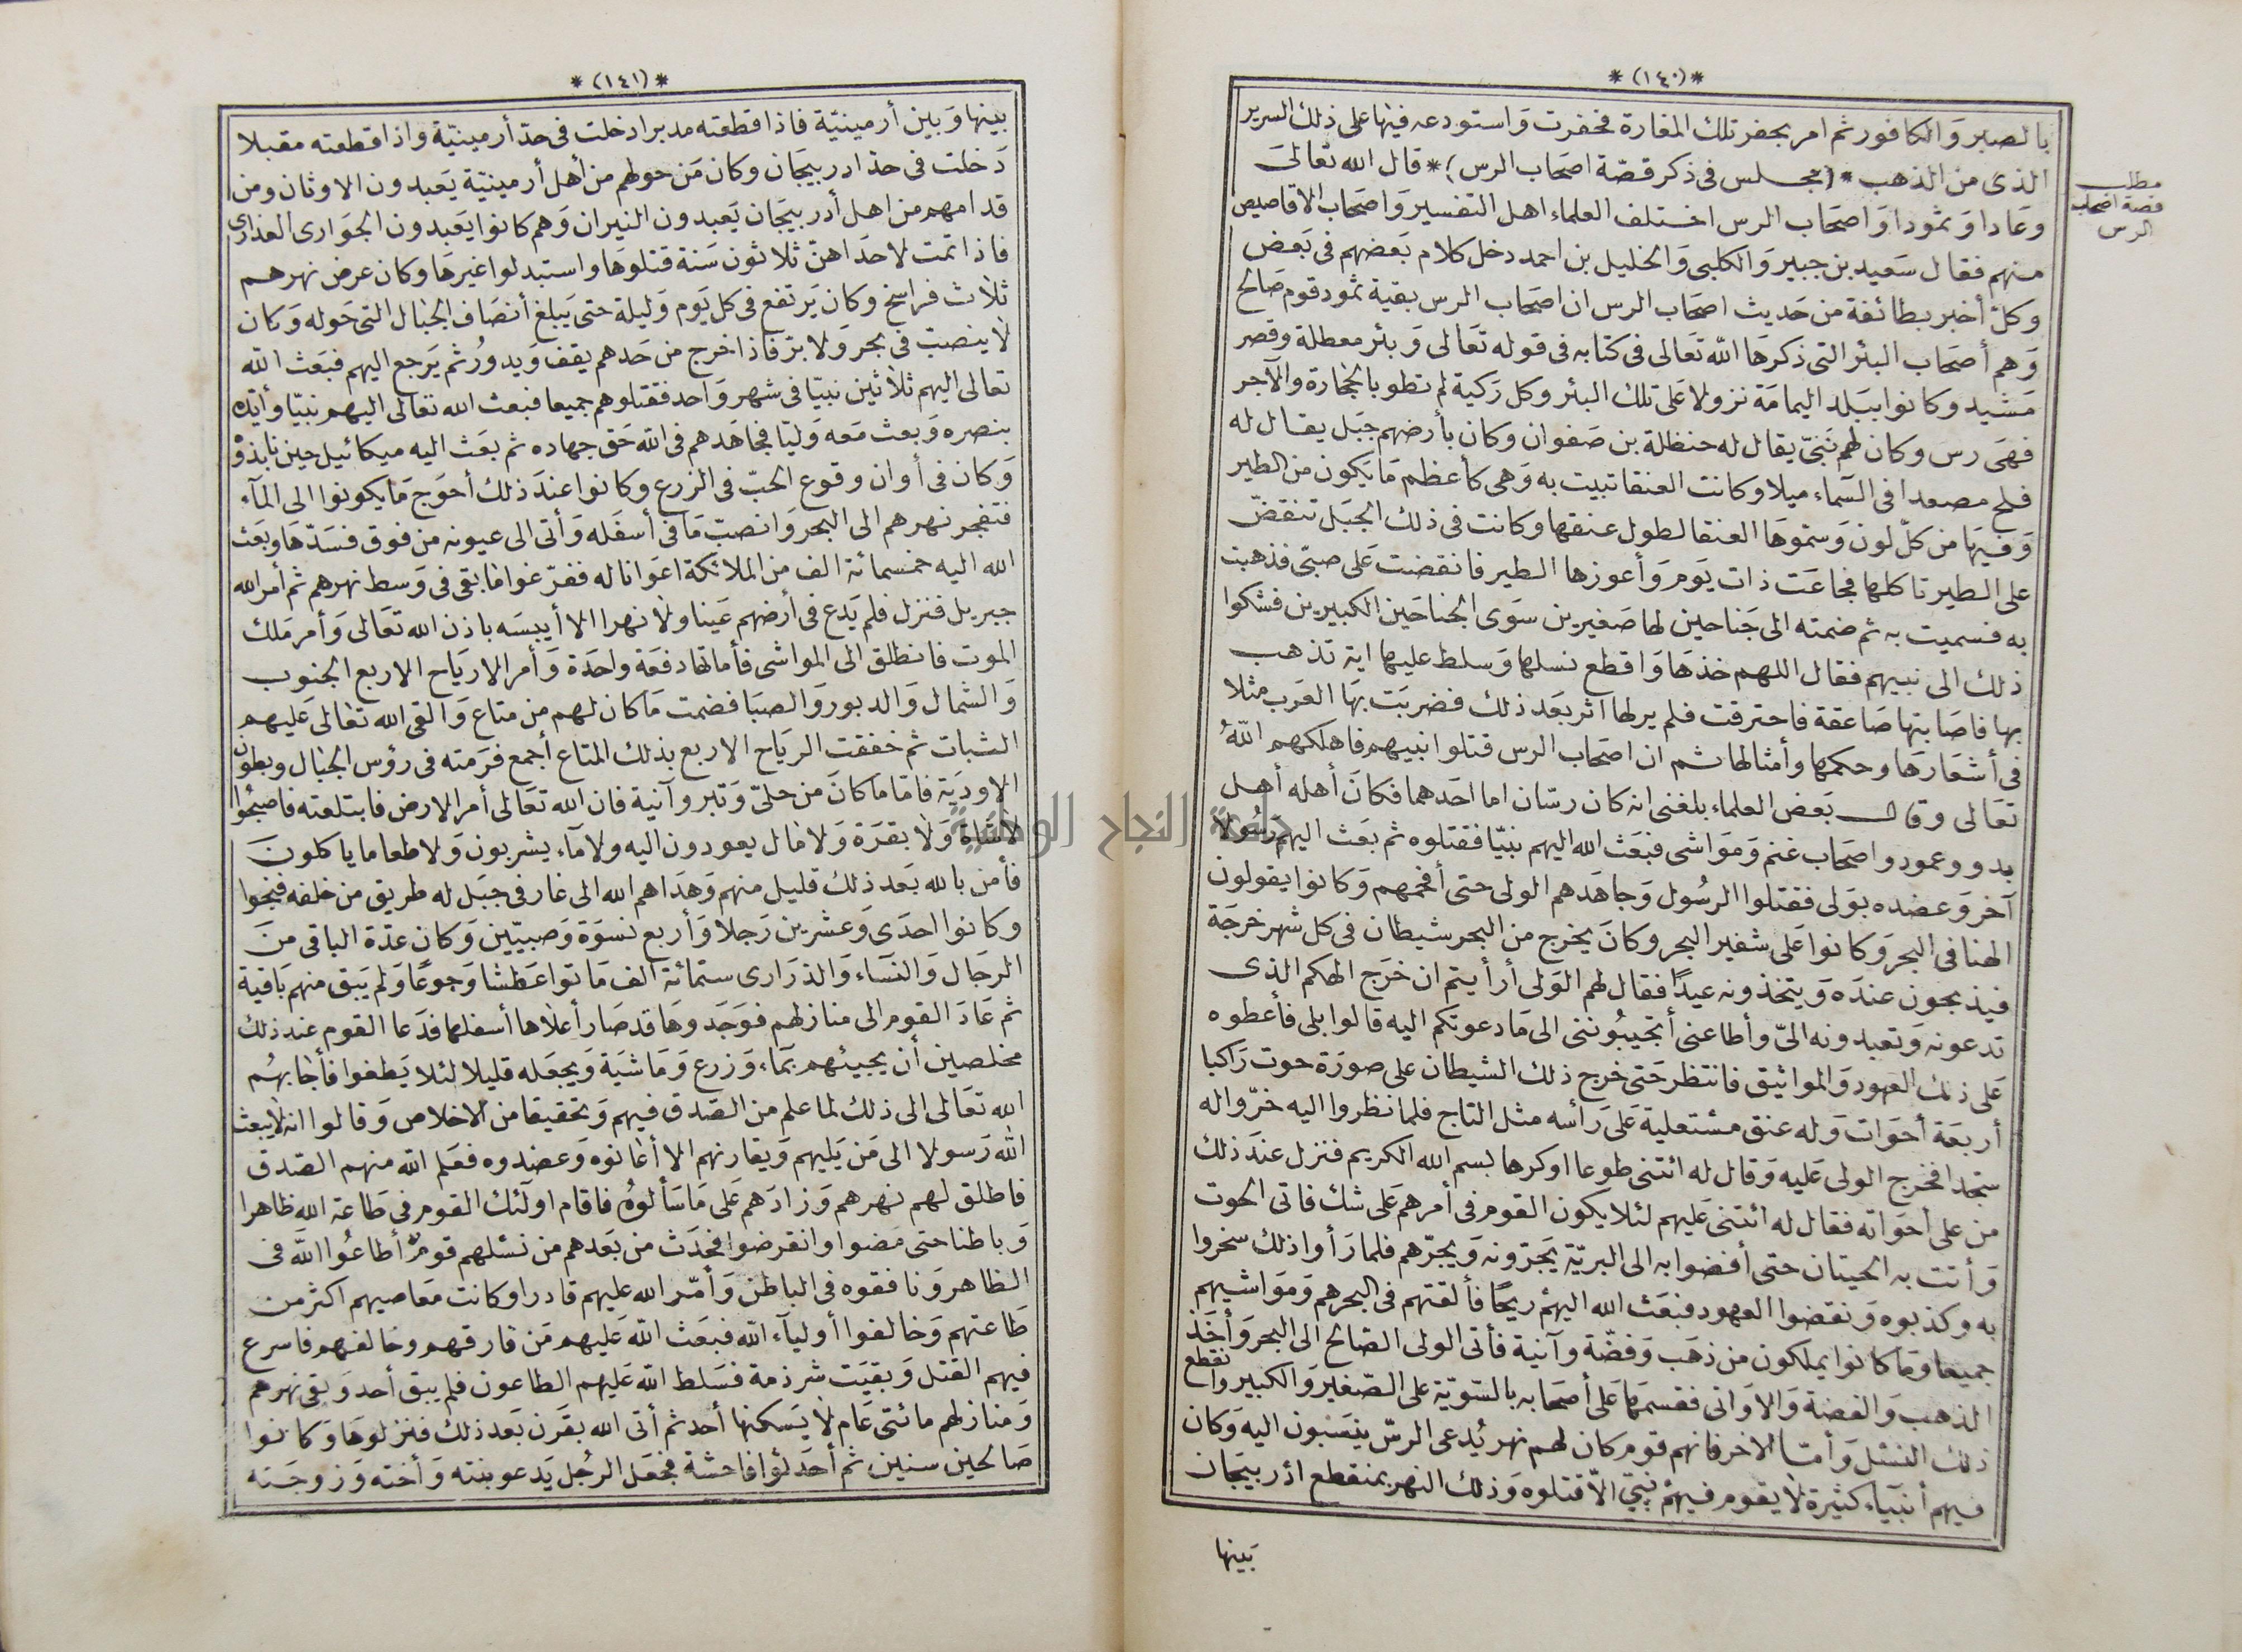 *(١٤٠)*
بالصبر والكافور ثم امر بحفر تلك المغارة فحفرت واستودعه فيها على ذلك السرير
الذى من الذهب * (مجلس فى ذكر قصّة اصحاب الرس) * قال الله تعالى
مطلب
قصة اصحاب
الرس
وعادا وثمودا واصحاب الرس اختلف العلماء اهل التفسير واصحاب الاقاصيص
منهم فقال سعيد بن جبير والكلبى والخليل بن احمد دخل كلام بعضهم فى بعض
وكلّ أخبر بطائفة من حديث اصحاب الرس ان اصحاب الرس بقية ثمود قوم صالح
وهم أصحاب البئر التى ذكرها اللّه تعالى فى كتابه فى قوله تعالى وبئر معطلة وقصر
مشيد وكانوا ببلد اليمامة نزولا على تلك البئر وكل ركية لم تطو بالحجارة والآجر
فهى رس وكان لهم نبىّ يقال له حنظلة بن صفوان وكان بأرضهم جبل يقال له
فلح مصعدا فى السّماء ميلا وكانت العنقا تبيت به وهى كأعظم ما يكون من الطير
وفيها من كلّ لون وسموها العنقا لطول عنقها وكانت فى ذلك الجبل تنقضّ
على الطير تاكلها فجاعت ذات يوم وأعوزها الطير فانقضت على صبىّ فذهبت
به فسميت به ثم ضمته الى جناحين لها صغيرين سوى الجناحين الكبيرين فشكوا
ذلك الى نبيهم فقال اللهم خذها واقطع نسلها وسلط عليها اية تذهب
بها فاصابتها صاعقة فاحترقت فلم ير لها اثر بعد ذلك فضربت بها العرب مثلا
فى أشعارها وحكمها وأمثالها ثم ان اصحاب الرس قتلوا نبيهم فاهلكهم اللّه
تعالى وقال بعض العلماء بلغنى انه كان رسّان اما احدهما فكان أهله أهل
بدو وعمود واصحاب غنم ومواشى فبعث الله اليهم نبيّا فقتلوه ثم بعث اليهم رسولا
آخر وعضده بولى فقتلوا الرسول وجاهدهم الولى حتى أفحمهم وكانوا يقولون
الهنا فى البحر وكانوا على شفير البحر وكان يخرج من البحر شيطان فى كل شهر خرجة
فيذبحون عنده ويتخذونه عيدًا فقال لهم الولى أرأيتم ان خرج الهكم الذى
تدعونه وتعبدونه الىّ وأطاعنى أتجيبوننى الى ما دعوتكم اليه قالوا بلى فأعطوه
على ذلك العهود والمواثيق فانتظر حتى خرج ذلك الشيطان على صورة حوت راكبا
أربعة أحوات وله عنق مستعلية على رأسه مثل التاج فلما نظروا اليه خرّوا له
سجدا فخرج الولى عليه وقال له ائتنى طوعا اوكرها بسم الله الكريم فنزل عند ذلك
من على أحواته فقال له ائتنى عليهم لئلا يكون القوم فى أمرهم على شك فاتى الحوت
وأتت به الحيتان حتى أفضوا به الى البريّة يجرّونه ويجرّهم فلما رأوا ذلك سخروا
به وكذبوه ونقضوا العهود فبعث الله اليهم ريحًا فألقتهم فى البحر هم ومواشيهم
جميعا وما كانوا يملكون من ذهب وفضّة وآنية فأتى الولى الصّالح الى البحر وأخذ
الذهب والفضة والاوانى فقسمها على أصحابه بالسّويّة على الصّغير والكبير وانقطع
ذلك النسل وأمّا الاخر فانهم قوم كان لهم نهر يُدعى الرسّ ينسبون اليه وكان
فيهم أنبياء كثيرة لا يقوم فيهم نبىّ الاّ قتلوه وذلك النهر بمنقطع اذربيجان
بينها
*(١٤١)*
بينها وبين أرمينيّة فاذا قطعته مدبرا دخلت فى حدّ أرمينيّة واذا قطعته مقبلا
دخلت فى حدّ ادربيجان وكان من حولهم من أهل أرمينيّة يعبدون الاوثان ومن
قدامهم من اهل أدربيجان يعبدون النيران وهم كانوا يعبدون الجوارى العذارى
فاذا تمت لاحداهنّ ثلاثون سنة قتلوها واستبدلوا غيرها وكان عرض نهرهم
ثلاث فراسخ وكان يرتفع فى كل يوم وليلة حتى يبلغ أنصاف الجبال التى حوله وكان
لا ينصبّ فى بحر ولا برّ فاذا خرج من حدهم يقف ويدور ثم يرجع اليهم فبعث اللّه
تعالى اليهم ثلاثين نبيّا فى شهر واحد فقتلوهم جميعا فبعث الله تعالى اليهم نبيّا وأيّده
بنصره وبعث معه وليّا فجاهدهم فى اللّه حق جهاده ثم بعث اليه ميكائيل حين نابذوه
وكان فى أوان وقوع الحبّ فى الزرع وكانوا عند ذلك أحوج ما يكونوا الى المآء
فتفجر نهرهم الى البحر وانصبّ ما فى أسفله وأتى الى عيونه من فوق فسدّها وبعث
الله اليه خمسمائة الف من الملائكة اعوانا له ففرّغوا ما بقى فى وسط نهرهم ثم أمر الله
جبريل فنزل فلم يدع فى أرضهم عينا ولا نهرا الا أيبسه باذن الله تعالى وأمر ملك
الموت فانطلق الى المواشى فأماتها دفعة واحدة وأمر الارياح الاربع الجنوب
والشمال والدبور والصبا فضمت ما كان لهم من متاع وألقى اللّه تعالى عليهم
الشبات ثم خفقت الرياح الاربع بذلك المتاع أجمع فرمته فى رؤس الجبال وبطون
الاودية فاما ما كان من حلىّ وتبر وآنية فان الله تعالى أمر الارض فابتلعته فاصبحوا
لا شاة ولا بقرة ولا مال يعودون اليه ولا مآء يشربون ولا طعاما ياكلون
فأمن بالله بعد ذلك قليل منهم وهداهم الله الى غار فى جبل له طريق من خلفه فنجوا
وكانوا احدى وعشرين رجلا وأربع نسوة وصبيّين وكان عدّة الباقى من
الرجال والنساء والذرارى ستمائة الف ماتوا عطشا وجوعًا ولم يبق منهم باقية
ثم عاد القوم الى منازلهم فوجدوها قد صار أعلاها أسفلها فدعا القوم عند ذلك
مخلصين أن يجيئهم بماء وزرع وماشية ويجعله قليلا لئلا يطغوا فأجابهم
الله تعالى الى ذلك لما علم من الصّدق فيهم وتحقيقا من الاخلاص وقالوا انه لا يبعث
اللّه رسولا الى من يليهم ويقارنهم الا أعانوه وعضدوه فعلم اللّه منهم الصّدق
فاطلق لهم نهرهم وزادهم على ما سألوه فاقام اولئك القوم فى طاعة الله ظاهرا
وباطنا حتى مضوا وانقرضوا فحدث من بعدهم من نسلهم قوم أطاعوا اللّه فى
الظاهر ونافقوه فى الباطن وأمّر الله عليهم قادرا وكانت معاصيهم اكثر من
طاعتهم وخالفوا أوليآء اللّه فبعث اللّه عليهم من فارقهم وخالفهم فاسرع
فيهم القتل وبقيت شرذمة فسلط اللّه عليهم الطاعون فلم يبق أحد وبقى نهرهم
ومنازلهم مائتى عام لا يسكنها أحد ثم أتى الله بقرن بعد ذلك فنزلوها وكانوا
صالحين سنين ثم أحدثوا فاحشة فجعل الرجل يدعو بنته وأخته وزوجته
جامعة النجاح الوطنية